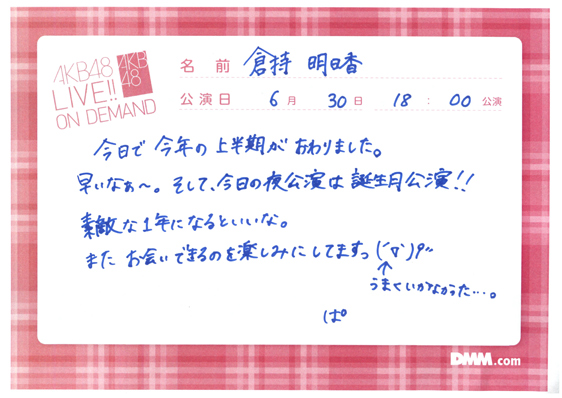 AKB48
LIVE!!
ON DEMAND
AKB
48
名前 倉持 明日香
公演日 6月 30日 18:00 公演
今日で 今年の 上半期が おわりました。
早いなぁ〜。そして、今日の夜公演は 誕生月公演!!
素敵な1年になるといいな。
また お会いできるのを楽しみにしてますっ (´▽`)ﾉﾞ
↑
うまくいかなかった…。
ぱ
DMM.com